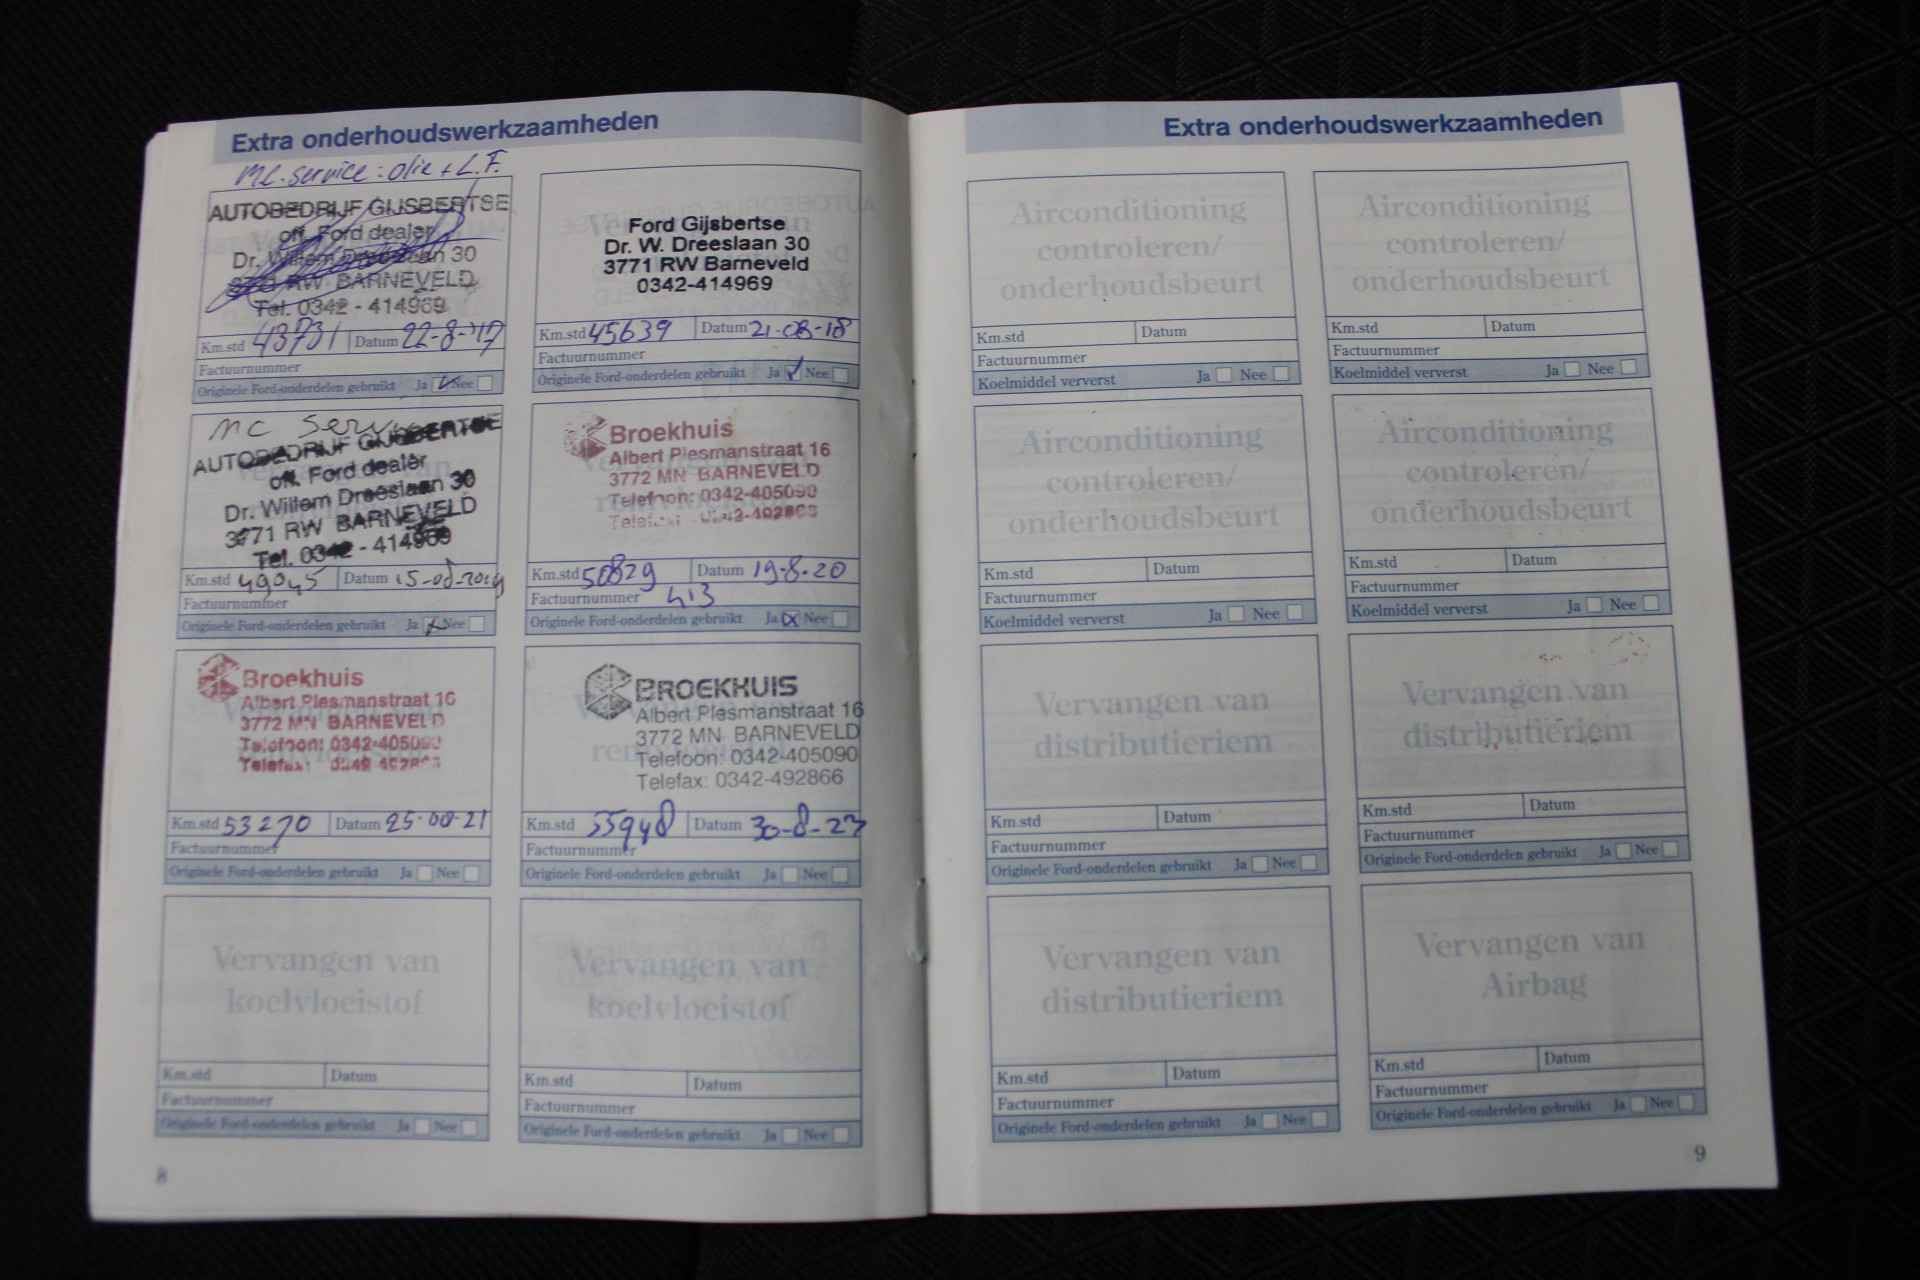 Extra onderhoudswerkzaamheden
service: olie + L.F.
AUTOBEDRIJF GIJSBERTSE
off. Ford dealer
Dr. Willem Dreeslaan 30
3771 RW BARNEVELD
Tel. 0342 - 414969
Km.std 43731 Datum 22-8-'17
Factuurnummer
Originele Ford-onderdelen gebruikt Ja Nee
Ford Gijsbertse
Dr. W. Dreeslaan 30
3771 RW Barneveld
0342-414969
Km.std 45639 Datum 21-08-18
Factuurnummer
Originele Ford-onderdelen gebruikt Ja Nee
AUTOBEDRIJF GIJSBERTSE
off. Ford dealer
Dr. Willem Dreeslaan 30
3771 RW BARNEVELD
Tel. 0342 - 414969
Km.std 49045 Datum 15-08-2019
Factuurnummer
Originele Ford-onderdelen gebruikt Ja Nee
Broekhuis
Albert Plesmanstraat 16
3772 MN BARNEVELD
Telefoon: 0342-405090
Telefax: 0342-492866
Km.std 50829 Datum 19-8-20
Factuurnummer 413
Originele Ford-onderdelen gebruikt Ja Nee
Broekhuis
Albert Plesmanstraat 16
3772 MN BARNEVELD
Telefoon: 0342-405090
Telefax:
Km.std 53270 Datum 25-08-21
Factuurnummer
Originele Ford-onderdelen gebruikt Ja Nee
BROEKHUIS
Albert Plesmanstraat 16
3772 MN BARNEVELD
Telefoon: 0342-405090
Telefax: 0342-492866
Km.std 55948 Datum
Factuurnummer
Originele Ford-onderdelen gebruikt Ja Nee
Vervangen van
koelvloeistof
Km.std Datum
Factuurnummer
Originele Ford-onderdelen gebruikt Ja Nee
Vervangen van
koelvloeistof
Km.std Datum
Factuurnummer
Originele Ford-onderdelen gebruikt Ja Nee
8
Extra onderhoudswerkzaamheden
Airconditioning
controleren/
onderhoudsbeurt
Km.std Datum
Factuurnummer
Koelmiddel ververst Ja Nee
Airconditioning
controleren/
onderhoudsbeurt
Km.std Datum
Factuurnummer
Koelmiddel ververst Ja Nee
Airconditioning
controleren/
onderhoudsbeurt
Km.std Datum
Factuurnummer
Koelmiddel ververst Ja Nee
Airconditioning
controleren/
onderhoudsbeurt
Km.std Datum
Factuurnummer
Koelmiddel ververst Ja Nee
Vervangen van
distributieriem
Km.std Datum
Factuurnummer
Originele Ford-onderdelen gebruikt Ja Nee
Vervangen van
distributieriem
Km.std Datum
Factuurnummer
Originele Ford-onderdelen gebruikt Ja Nee
Vervangen van
distributieriem
Km.std Datum
Factuurnummer
Originele Ford-onderdelen gebruikt Ja Nee
Vervangen van
Airbag
Km.std Datum
Factuurnummer
Originele Ford-onderdelen gebruikt Ja Nee
9